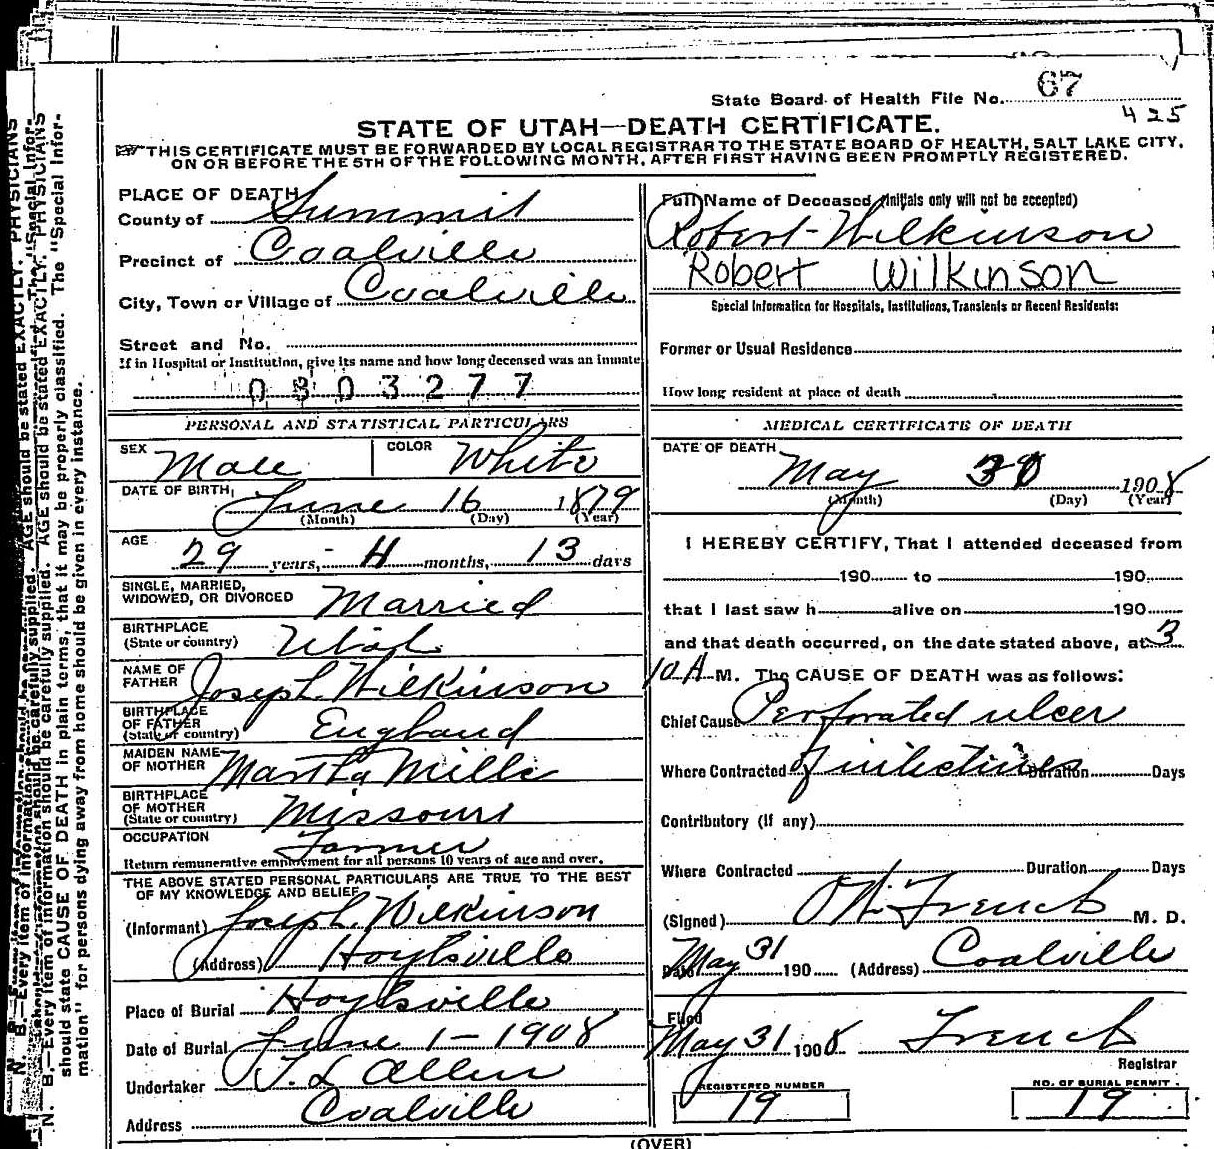 State Board of Health File No. 67
425
STATE OF UTAH—DEATH CERTIFICATE.
THIS CERTIFICATE MUST BE FORWARDED BY LOCAL REGISTRAR TO THE STATE BOARD OF HEALTH, SALT LAKE CITY,
ON OR BEFORE THE 5TH OF THE FOLLOWING MONTH, AFTER FIRST HAVING BEEN PROMPTLY REGISTERED.
PLACE OF DEATH
County of Summit
Precinct of Coalville
City, Town or Village of Coalville
Street and No.
If in Hospital or Institution, give its name and how long deceased was an inmate
0803277
PERSONAL AND STATISTICAL PARTICULARS
SEX Male COLOR White
DATE OF BIRTH, June 16 1879
(Month) (Day) (Year)
AGE 29 years, - 11 months, 13 days
SINGLE, MARRIED,
WIDOWED, OR DIVORCED Married
BIRTHPLACE
(State or country) Utah
NAME OF
FATHER Joseph Wilkinson
BIRTHPLACE
OF FATHER
(State or country) England
MAIDEN NAME
OF MOTHER Martha Mills
BIRTHPLACE
OF MOTHER
(State or country) Missouri
OCCUPATION Farmer
Return remunerative employment for all persons 10 years of age and over.
THE ABOVE STATED PERSONAL PARTICULARS ARE TRUE TO THE BEST
OF MY KNOWLEDGE AND BELIEF
(Informant) Joseph Wilkinson
(Address) Hoytsville
Place of Burial Hoytsville
Date of Burial June 1-1908
Undertaker T. L Allen
Address Coalville
Full Name of Deceased (Initials only will not be accepted)
Robert Wilkinson
Robert Wilkinson
Special Information for Hospitals, Institutions, Transients or Recent Residents:
Former or Usual Residence
How long resident at place of death
MEDICAL CERTIFICATE OF DEATH
DATE OF DEATH
May 30 1908
(Month) (Day) (Year)
I HEREBY CERTIFY, That I attended deceased from
190 to 190
that I last saw h alive on 190
and that death occurred, on the date stated above, at 3
10 A M. The CAUSE OF DEATH was as follows:
Chief Cause Perforated ulcer
Where Contracted of intestines Duration Days
Contributory (if any)
Where Contracted Duration Days
(Signed) French M. D.
Date May 31 190 (Address) Coalville
Filed
May 31 1908 French
Registrar
REGISTERED NUMBER
19
NO. OF BURIAL PERMIT
19
(OVER)
N. B.—Every item of information should be carefully supplied. AGE should be stated EXACTLY. PHYSICIANS
should state CAUSE OF DEATH in plain terms, that it may be properly classified. The "Special Infor-
mation" for persons dying away from home should be given in every instance.